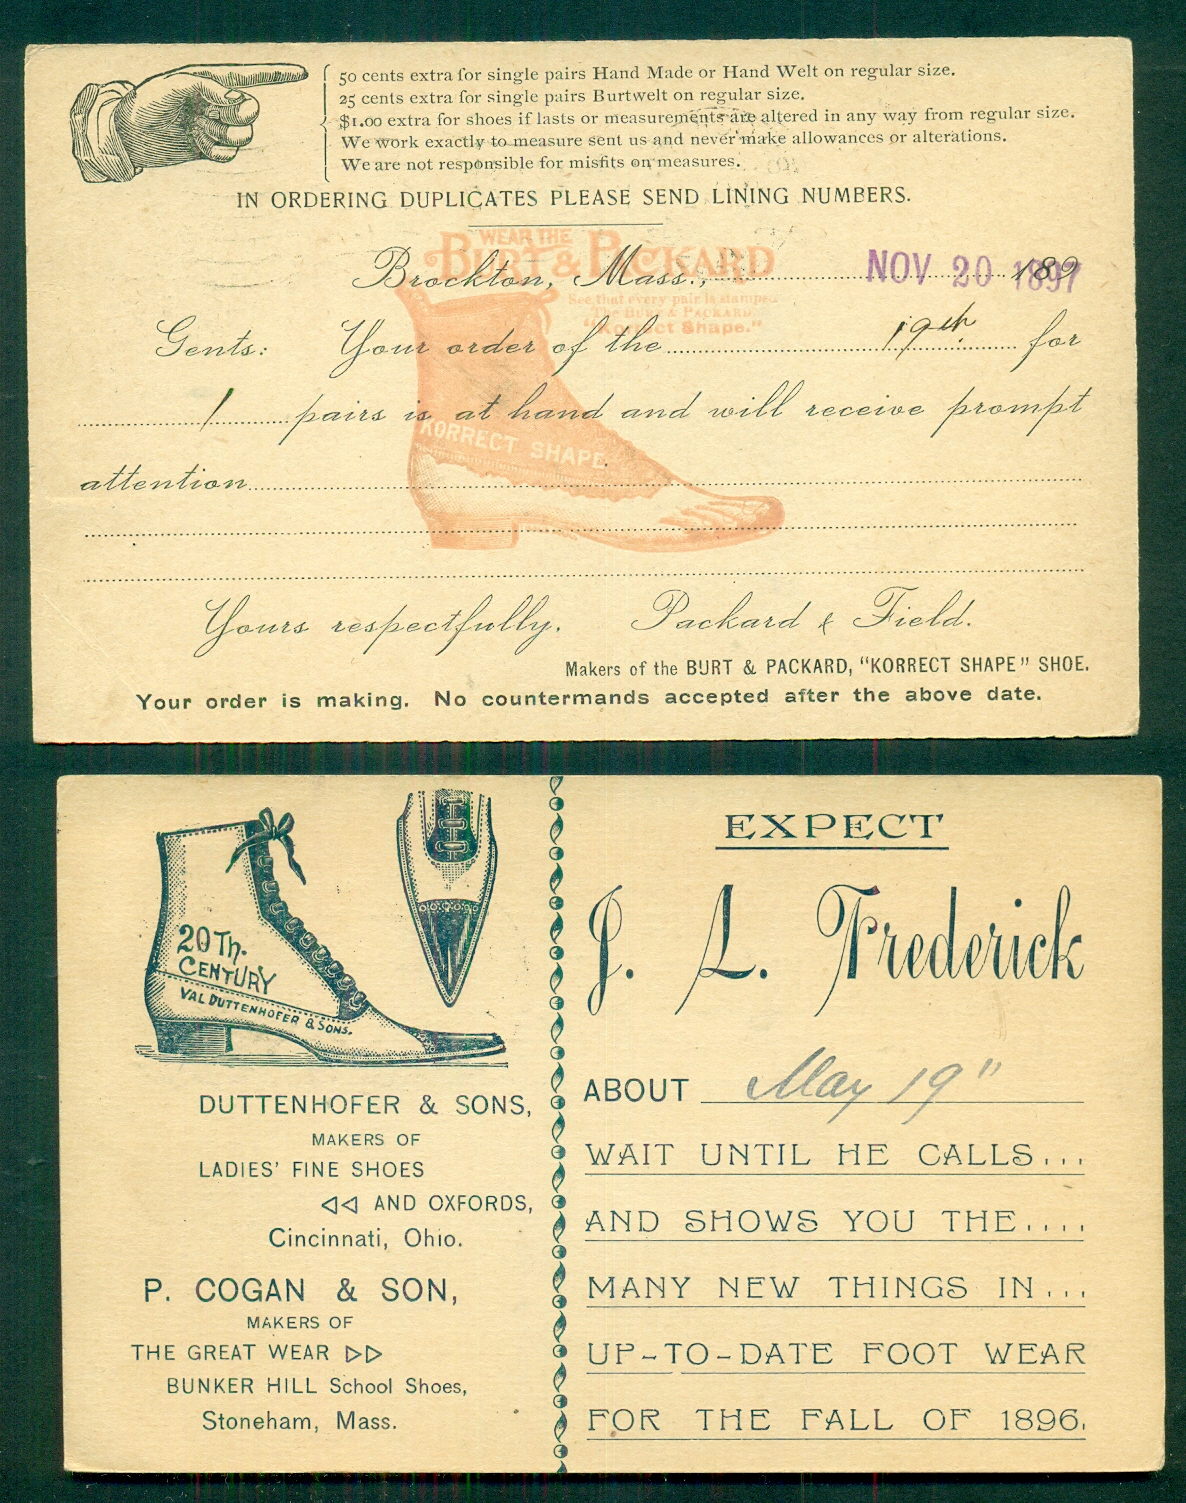 50 cents extra for single pairs Hand Made or Hand Welt on regular size.
25 cents extra for single pairs Burtwelt on regular size.
$1.00 extra for shoes if lasts or measurements are altered in any way from regular size.
We work exactly to measure sent us and never make allowances or alterations.
We are not responsible for misfits on measures.
IN ORDERING DUPLICATES PLEASE SEND LINING NUMBERS.
WEAR THE
BURT & PACKARD
See that every pair is stamped
The BURT & PACKARD
"Korrect Shape."
KORRECT SHAPE
Brockton, Mass., NOV 20 1897 189
Gents: Your order of the 19th for
1 pairs is at hand and will receive prompt
attention
Yours respectfully, Packard & Field.
Makers of the BURT & PACKARD, "KORRECT SHAPE" SHOE.
Your order is making. No countermands accepted after the above date.
20TH.
CENTURY
VAL DUTTENHOFER & SONS.
DUTTENHOFER & SONS,
MAKERS OF
LADIES' FINE SHOES
AND OXFORDS,
Cincinnati, Ohio.
P. COGAN & SON,
MAKERS OF
THE GREAT WEAR
BUNKER HILL School Shoes,
Stoneham, Mass.
EXPECT
J. L. Frederick
ABOUT May 19"
WAIT UNTIL HE CALLS...
AND SHOWS YOU THE....
MANY NEW THINGS IN...
UP-TO-DATE FOOT WEAR
FOR THE FALL OF 1896.